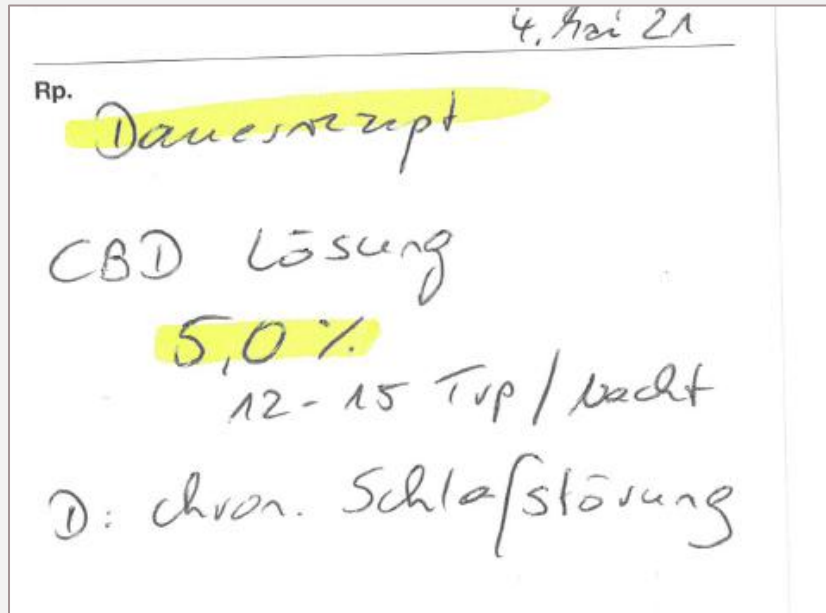 4. Mai 21
Rp.
Dauerrezept
CBD Lösung
5,0 %
12-15 Trp / Nacht
D: chron. Schlafstörung